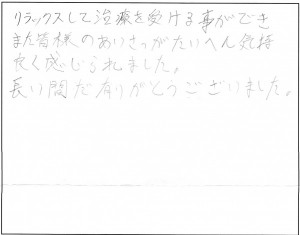 リラックスして治療を受ける事ができ
また皆様のあいさつがたいへん気持
良く感じられました。
長い間だ有りがとうございました。